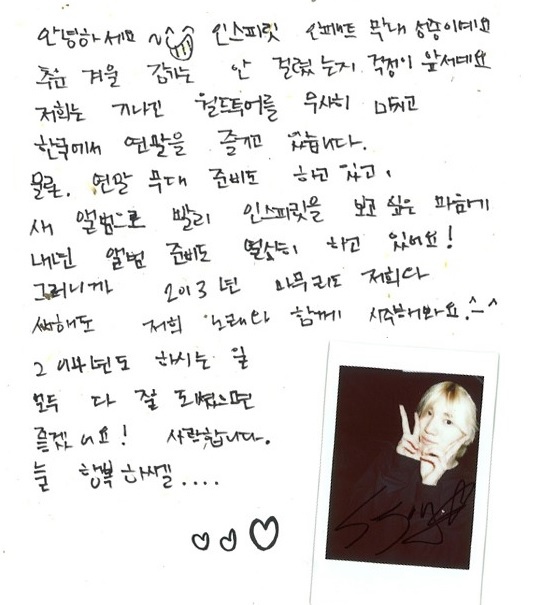 안녕하세요 ~^^ 인스피릿 인피니트 막내 성종이예요
추운 겨울 감기는 안 걸렸는지 걱정이 앞서네요
저희는 기나긴 월드투어를 무사히 마치고
한국에서 연말을 즐기고 있습니다.
물론, 연말 무대 준비도 하고 있고,
새 앨범으로 빨리 인스피릿을 보고 싶은 마음에
내년 앨범 준비도 열심히 하고 있어요!
그러니까 2013년 마무리도 저희와
새해도 저희 노래와 함께 시작해봐요.^-^
2014년도 하시는 일
모두 다 잘 되셨으면
좋겠어요! 사랑합니다.
늘 행복하쎌....
♡♡♡